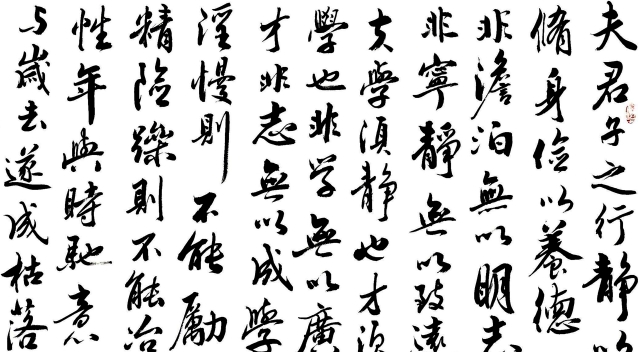 夫君子之行靜以
脩身儉以養德
非澹泊無以明志
非寧靜無以致遠
夫學須靜也才須
學也非学無以廣
才非志無以成學
淫慢則不能勵
精險躁則不能冶
性年與時馳意
与歲去遂成枯落